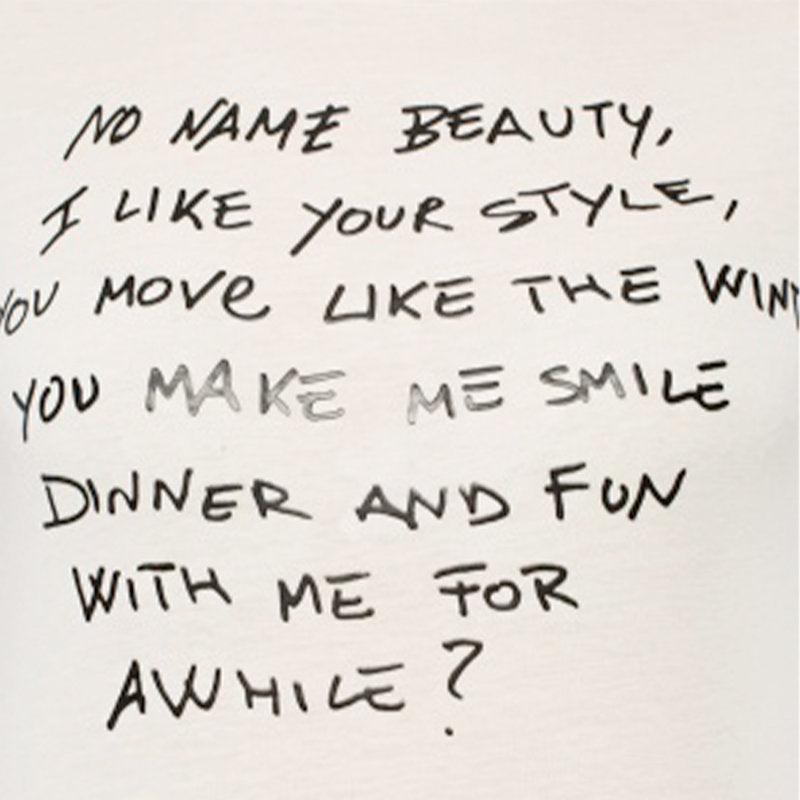 NO NAME BEAUTY,
I LIKE YOUR STYLE,
YOU MOVE LIKE THE WIN
YOU MAKE ME SMILE
DINNER AND FUN
WITH ME FOR
AWHILE?